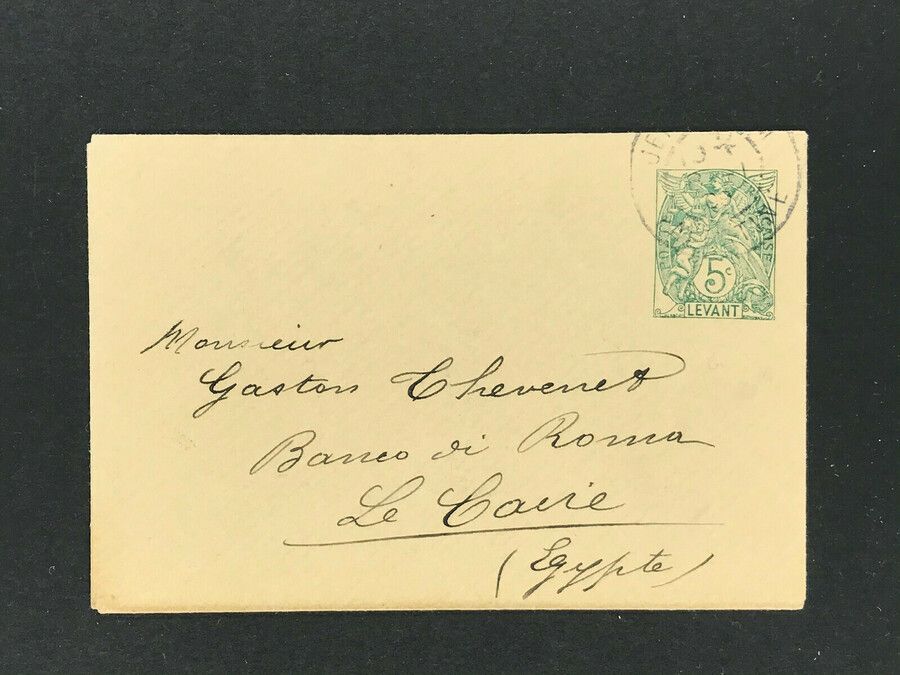 POSTE FRANÇAISE
5c
LEVANT
Monsieur
Gaston Chevenet
Banco di Roma
Le Caire
(Egypte)